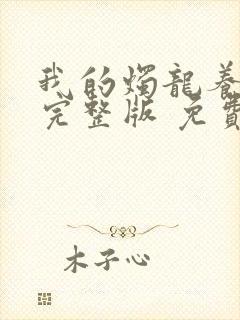 我的燭龍養
完整版 免費
木子心